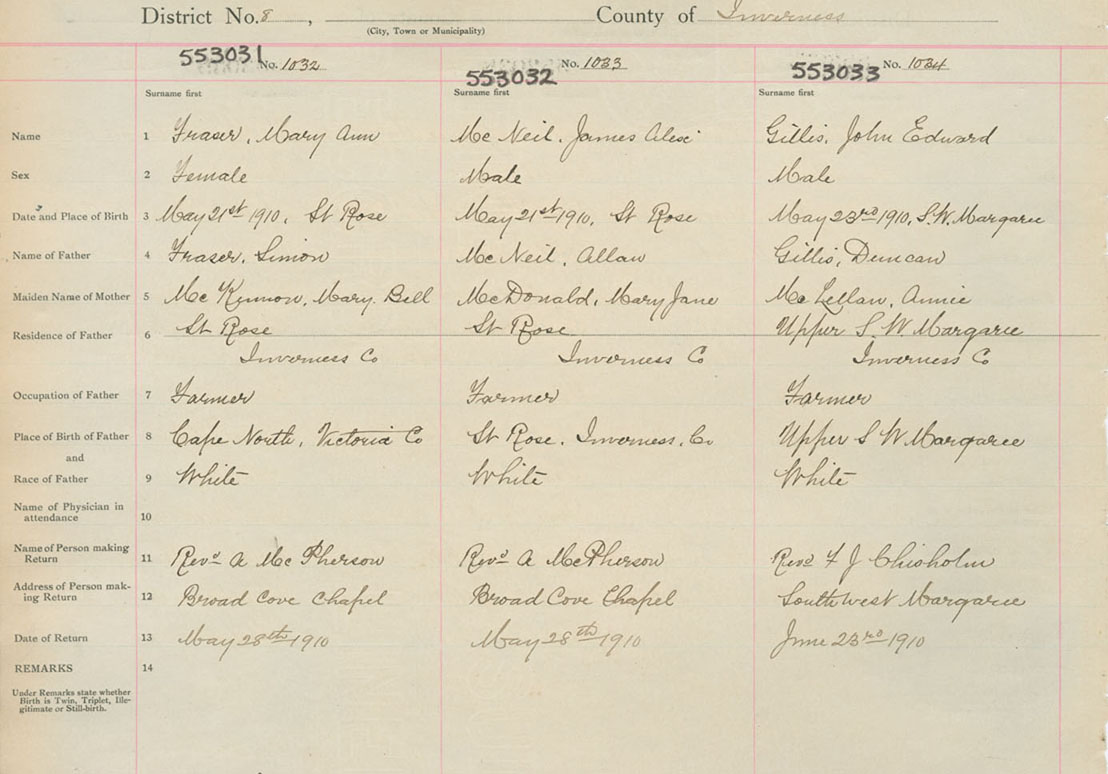 District No. 8 , County of Inverness
(City, Town or Municipality)
553031 No. 1032 553032 No. 1033 553033 No. 1034
Surname first Surname first Surname first
Name 1 Fraser, Mary Ann Mc Neil, James Alex Gillis, John Edward
Sex 2 Female Male Male
Date and Place of Birth 3 May 21st 1910, St Rose May 21st 1910, St Rose May 23rd 1910, S.W. Margaree
Name of Father 4 Fraser, Simon Mc Neil, Allan Gillis, Duncan
Maiden Name of Mother 5 Mc Kinnon, Mary Bell McDonald, Mary Jane Mc Lellan, Annie
Residence of Father 6 St Rose St Rose Upper S. W. Margaree
Inverness Co Inverness Co Inverness Co
Occupation of Father 7 Farmer Farmer Farmer
Place of Birth of Father 8 Cape North, Victoria Co St Rose, Inverness, Co Upper S W Margaree
and
Race of Father 9 White White White
Name of Physician in
attendance 10
Name of Person making
Return 11 Revd A Mc Pherson Revd A McPherson Revd F J Chisholm
Address of Person mak-
ing Return 12 Broad Cove Chapel Broad Cove Chapel Southwest Margaree
Date of Return 13 May 28th 1910 May 28th 1910 June 23rd 1910
REMARKS 14
Under Remarks state whether
Birth is Twin, Triplet, Ille-
gitimate or Still-birth.